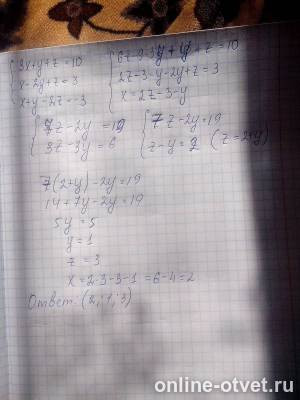 3x+y+z=10
x-2y+z=3
x+y-2z=-3
6z-9-3y+y+z=10
2z-3-y-2y+z=3
x=2z-3-y
7z-2y=19
3z-3y=6
7z-2y=19
z-y=2 (z=2+y)
7(2+y)-2y=19
14+7y-2y=19
5y=5
y=1
z=3
x=2·3-3-1=6-4=2
Ответ: (2;1;3)
online-otvet.ru